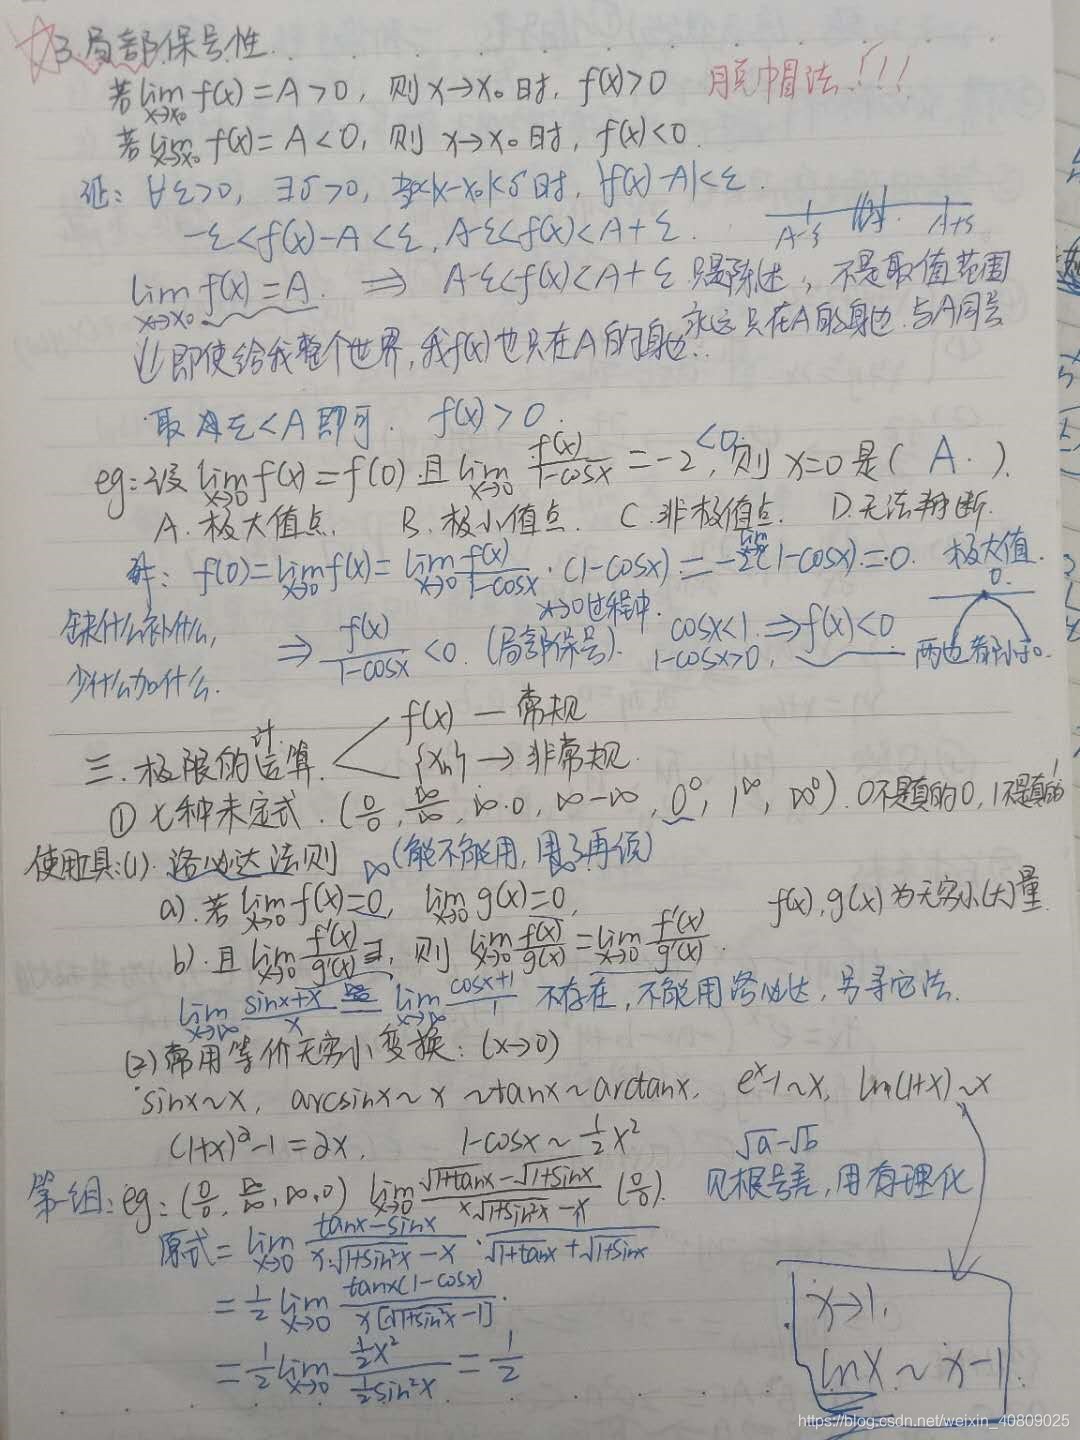 3.局部保号性.
若lim x→x₀ f(x)=A>0, 则x→x₀时, f(x)>0 脱帽法!!!
若lim x→x₀ f(x)=A<0, 则x→x₀时, f(x)<0.
证: ∀ε>0, ∃δ>0, 当0<|x-x₀|<δ时, |f(x)-A|<ε.
-ε<f(x)-A<ε, A-ε<f(x)<A+ε. A-ε A+ε
lim x→x₀ f(x)=A. ⇒ A-ε<f(x)<A+ε 只是陈述, 不是取值范围
永远只在A的身边.与A同号
即使给我整个世界,我f(x)也只在A的身边..
取 ε<A即可. f(x)>0.
eg:设lim x→0 f(x)=f(0).且lim x→0 f(x)/(1-cosx)=-2<0,则x=0是( A. ).
A.极大值点. B.极小值点. C.非极值点. D.无法判断.
解: f(0)=lim x→0 f(x)=lim x→0 f(x)/(1-cosx)·(1-cosx)=-2 lim x→0 (1-cosx)=0. 极大值.
缺什么补什么, ⇒ f(x)/(1-cosx)<0.(局部保号). x→0过程中. cosx<1. 1-cosx>0, ⇒f(x)<0 0.
少什么加什么. 两边都小于0.
三.极限的计算. f(x)—常规
{xₙ}→非常规.
①七种未定式.(0/0, ∞/∞, ∞·0, ∞-∞, 0⁰, 1^∞, ∞⁰). 0不是真的0,1不是真的1
使用工具:(1).洛必达法则 (能不能用,用了再说)
a).若lim x→0 f(x)=0, lim x→0 g(x)=0, ∞ f(x),g(x)为无穷小(大)量.
b).且lim x→0 f'(x)/g'(x)∃, 则lim x→0 f(x)/g(x)=lim x→0 f'(x)/g'(x).
lim x→∞ (sinx+x)/x = lim x→∞ (cosx+1)/1 不存在,不能用洛必达,另寻它法.
(2)常用等价无穷小变换:(x→0)
sinx~x, arcsinx~x~tanx~arctanx, eˣ-1~x, ln(1+x)~x
(1+x)^2-1=2x, 1-cosx~½x² √a-√b
第一组:eg:(0/0, ∞/∞, ∞·0) lim x→0 (√(1+tanx)-√(1+sinx))/(x√(1+sin²x)-x) (0/0). 见根号差,用有理化
原式=lim x→0 (tanx-sinx)/(x·√(1+sin²x)-x)·1/(√(1+tanx)+√(1+sinx))
=½lim x→0 tanx(1-cosx)/(x[√(1+sin²x)-1]).
=½lim x→0 (½x²)/(½sin²x)=½
x→1.
lnx~x-1.
https://blog.csdn.net/weixin_40809025